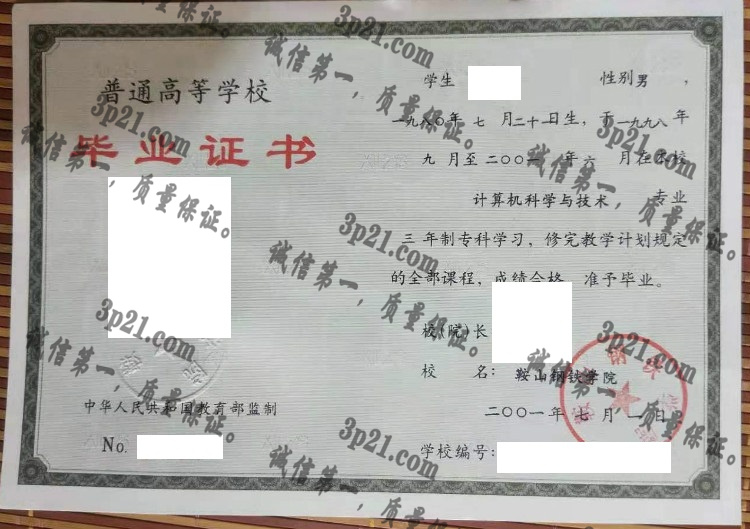 普通高等学校
毕业证书
中华人民共和国教育部监制
No.
学生 性别男，
一九八〇年 七 月二十一日生，于一九九八年
九 月至二〇〇一 年六 月在本校
计算机科学与技术， 专业
三 年制专科学习，修完教学计划规定
的全部课程，成绩合格，准予毕业。
校(院)长
校 名：鞍山钢铁学院
二〇〇一年 七 月 一日
学校编号：
3p21.com
诚信第一，质量保证。
3p21.com
诚信第一，质量保证。
3p21.com
诚信第一，质量保证。
3p21.com
诚信第一，质量保证。
3p21.com
诚信第一，质量保证。
3p21.com
诚信第一，质量保证。
3p21.com
诚信第一，质量保证。